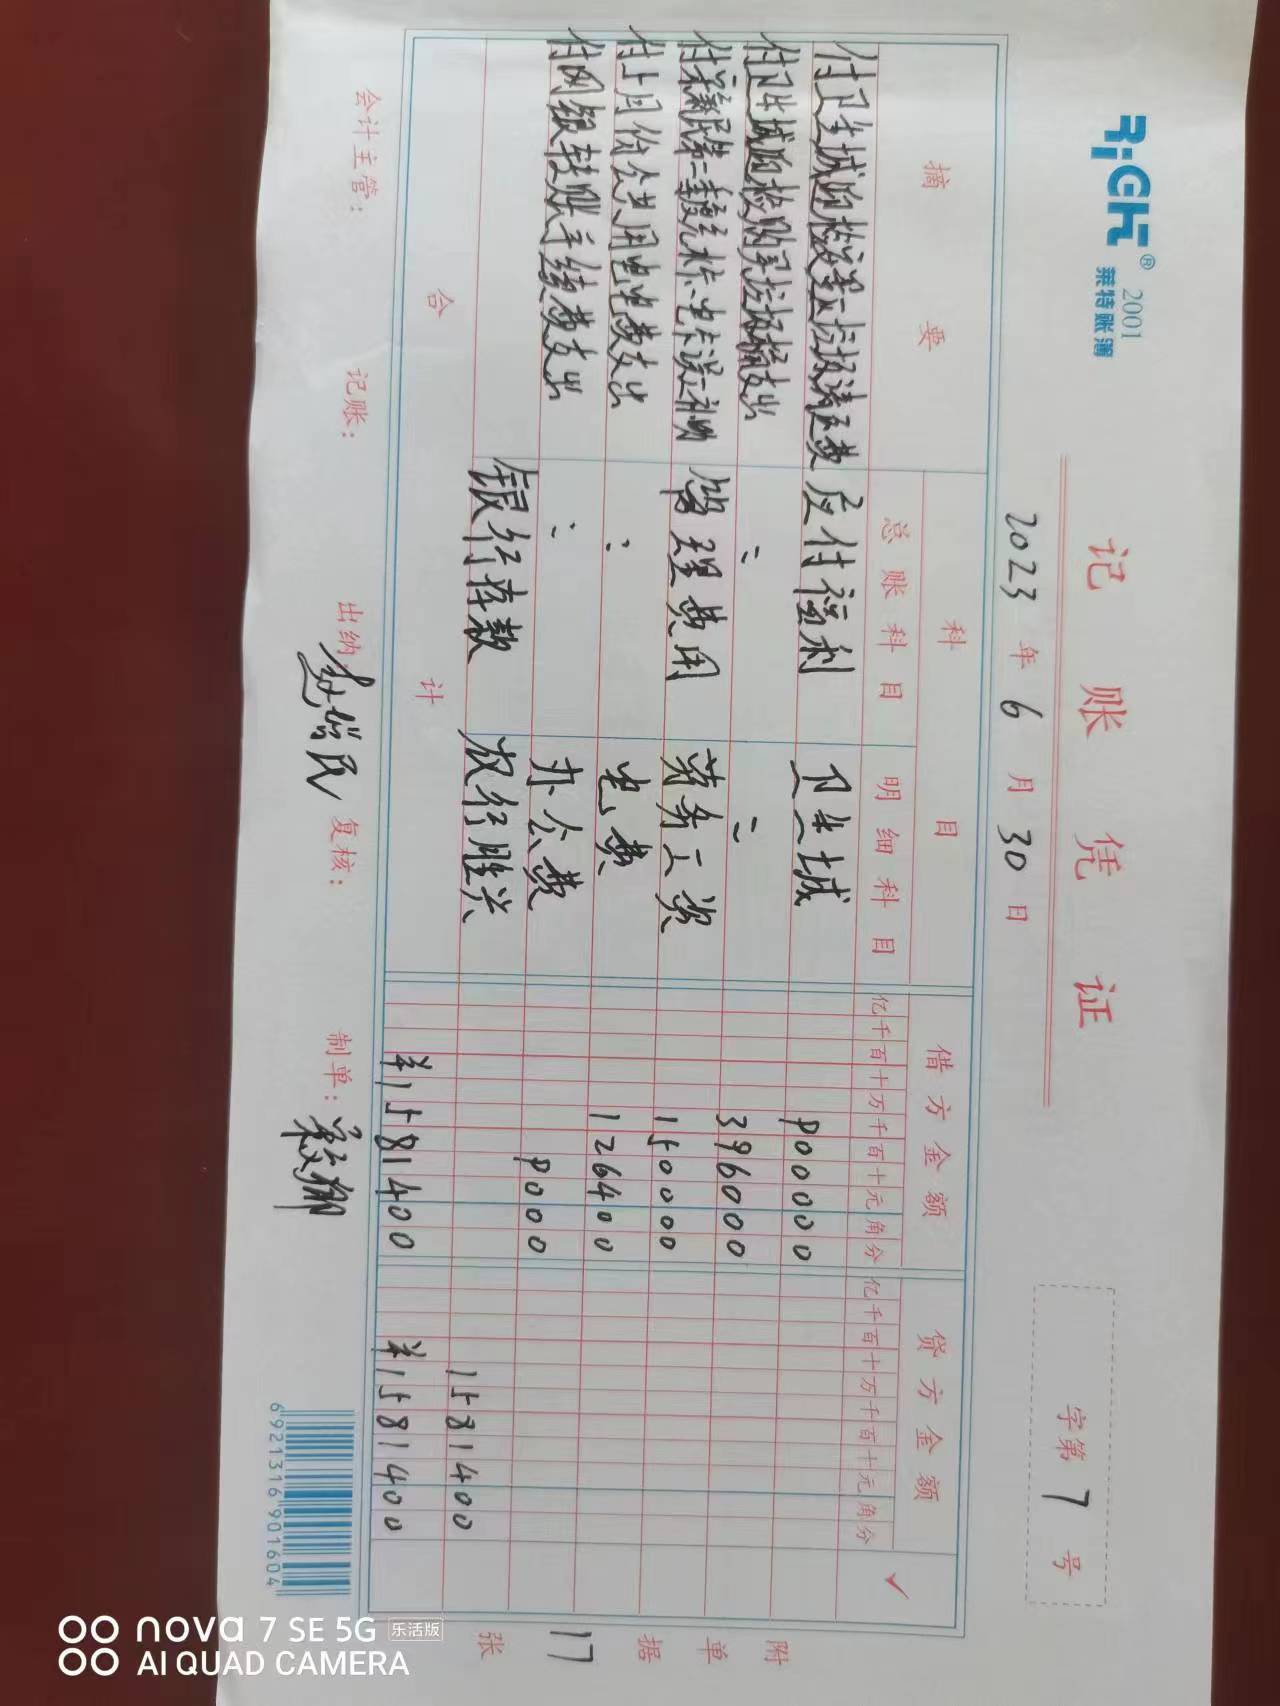 RiGHt® 2001
莱特账簿
记账凭证
2023年6月30日
字第7号
摘要 科目 借方金额 贷方金额 ✓
总账科目 明细科目 亿千百十万千百十元角分 亿千百十万千百十元角分
付卫生城迎检 垃圾清运费 应付福利 卫生城 900000
付卫生城迎检购买垃圾桶支出 〃 〃 396000
付 民第二季度 补助 管理费用 劳务工资 150000
付上月份公共用电电费支出 : 电费 126400
付网银转账手续费支出 : 办公费 9000
银行存款 农行胜兴 1581400
合计 ¥1581400 ¥1581400
附单据17张
会计主管: 记账: 出纳: 复核: 制单:
6921316901604
nova 7 SE 5G 乐活版
AI QUAD CAMERA